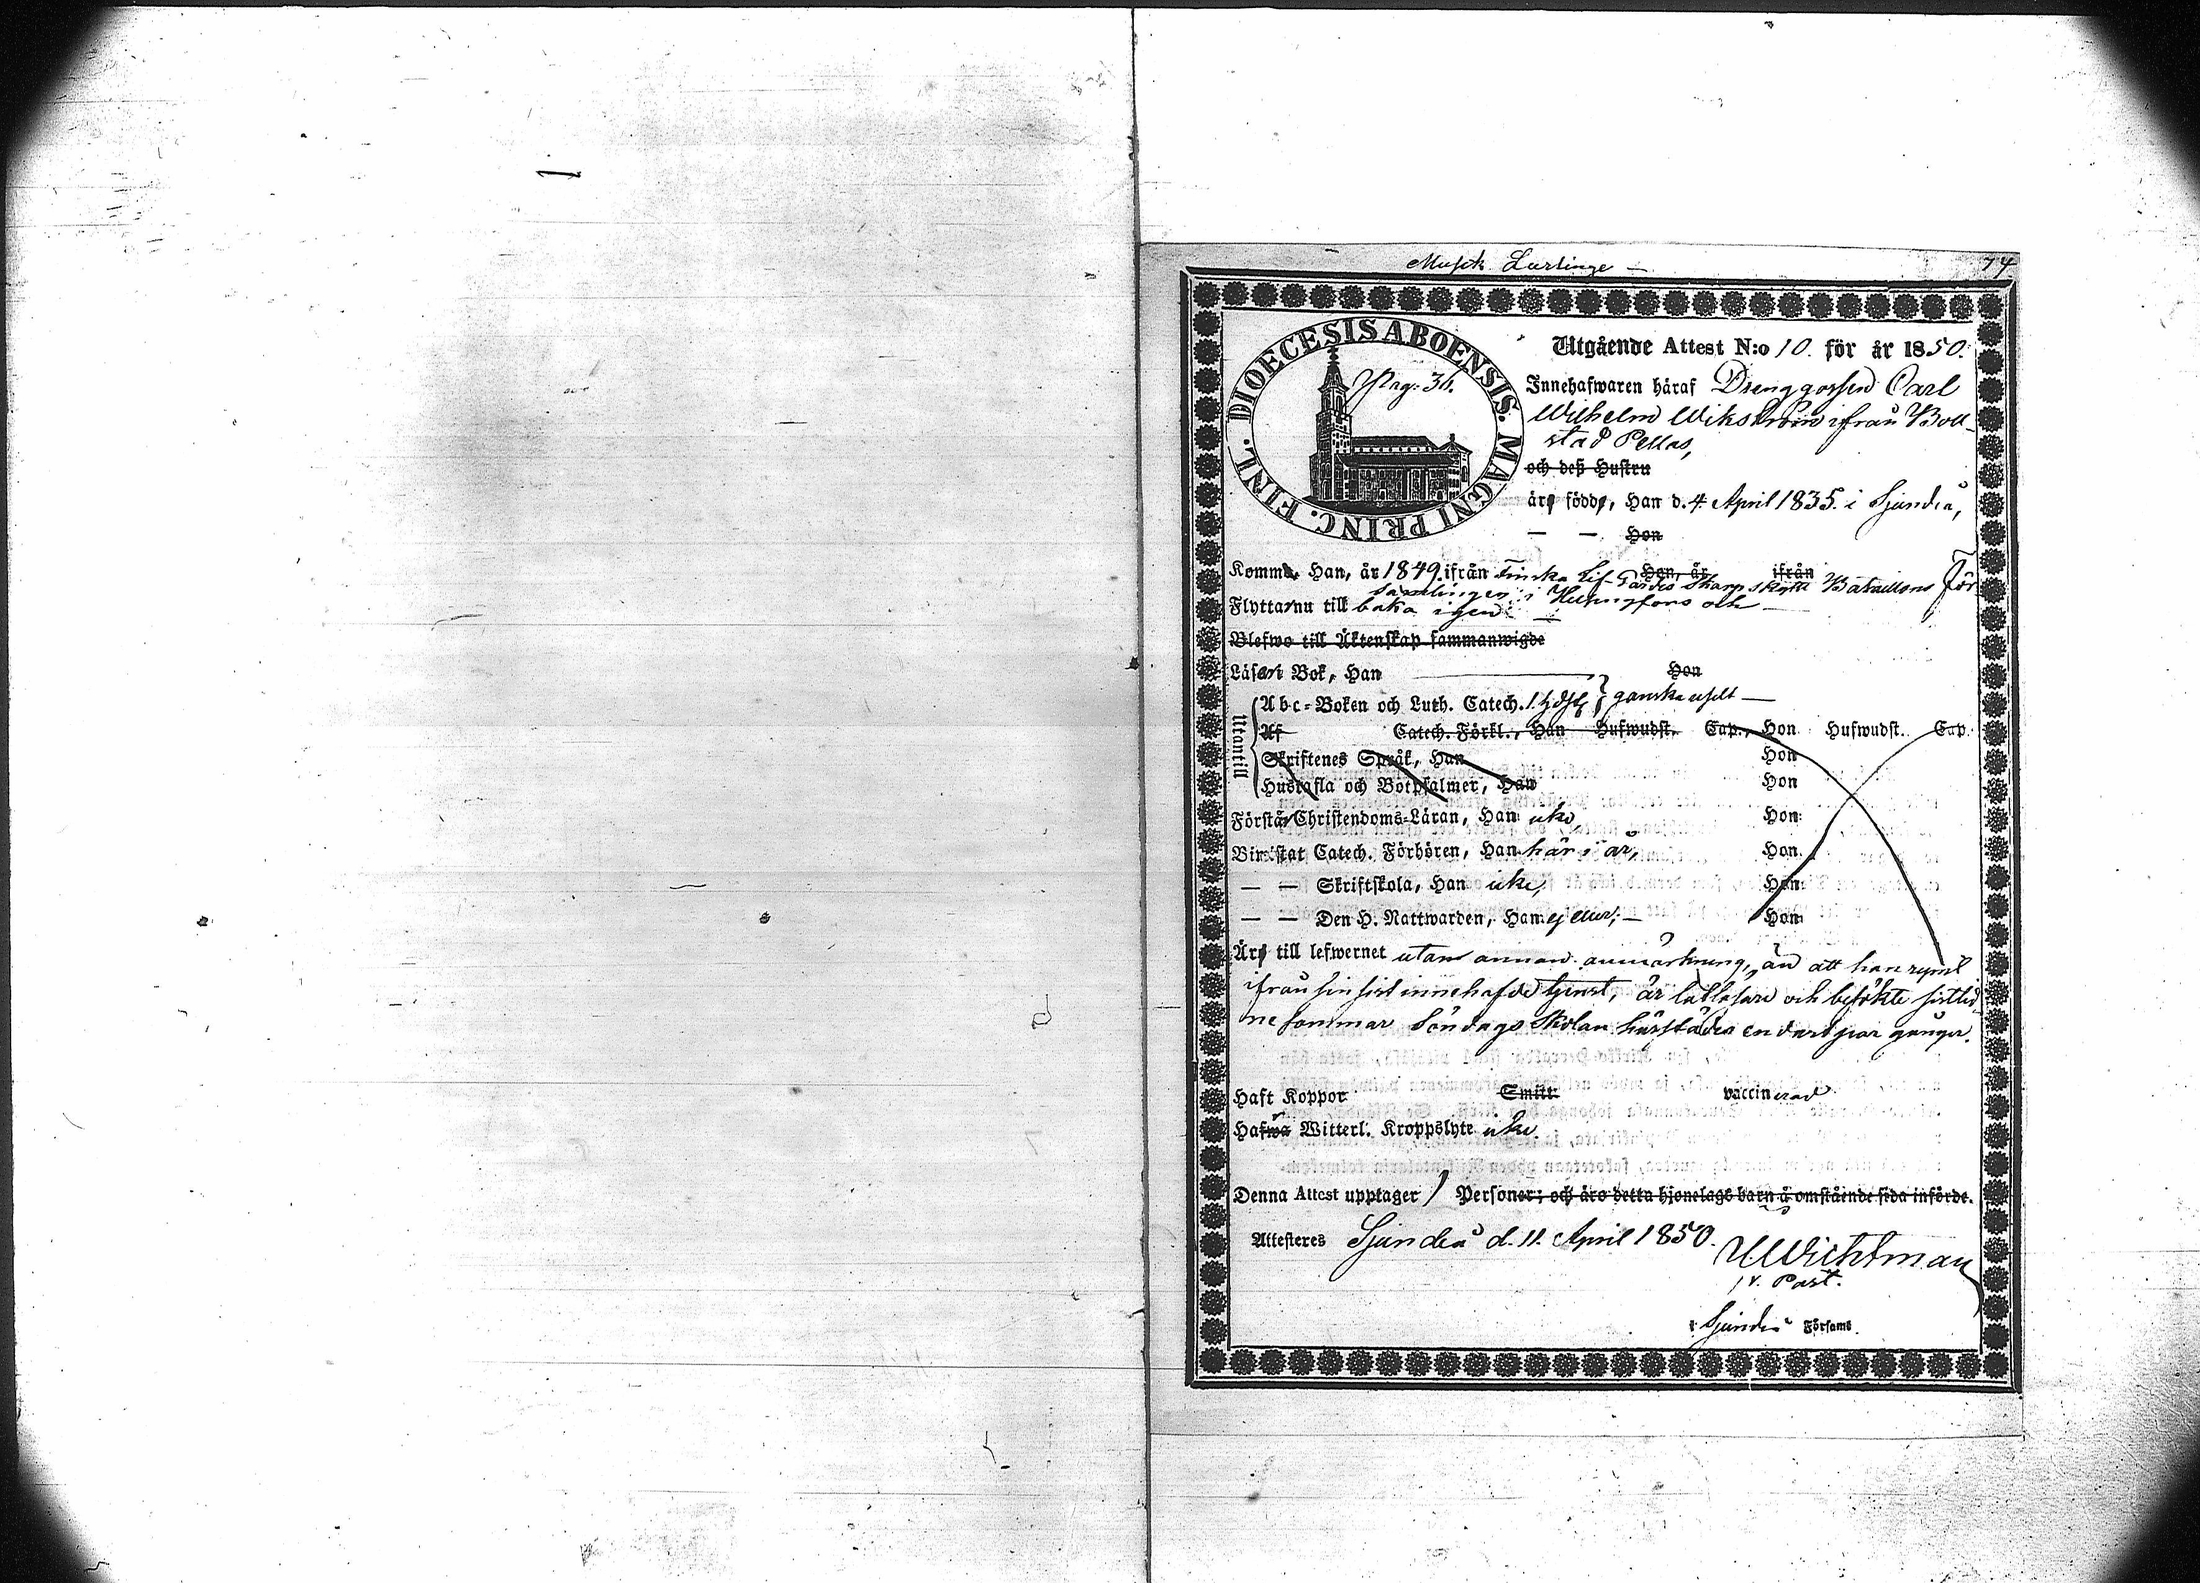 Musik Lärlinge —
74
DIOECESIS ABOENSIS. MAGNI PRINC. FINL.
Pag: 36.
Utgående Attest N:o 10. för år 1850.
Innehafwaren häraf Drenggossen Carl
Wilhelm Wikström ifrån Boll-
stad Pellas,
och deß Hustru
äro födde, Han d. 4 April 1835. i Sjundeå,
— — Hon
Komme Han, år 1849. ifrån Finska Lif-Gardes Skarpskytte Bataillons För
Hon, år ifrån
samlingen i Helsingfors och
Flytta nu till baka igen
Blefwo till Äktenskap sammanwigde
Läsa i Bok, Han Hon
Utantill
Abc-Boken och Luth. Catech. ganska
Af Catech. Förkl., Han Hufwudst. Cap., Hon Hufwudst. Cap.
Skriftenes Språk, Han Hon
Hustafla och Botpsalmer, Han Hon
Förstå Christendoms-Läran, Han icke, Hon
Biwistat Catech. Förhören, Han här i år, Hon
— — Skriftskola, Han icke, Hon
— — Den H. Nattwarden, Han ej eller; — Hon
Äro till lefwernet utan annan anmärkning, än att han rymt
ifrån sin sist innehafde tjenst, är och besökte sistlid
ne sommar Söndags Skolan härstädes endast par gånger.
Haft Koppor Smitt. vaccinerad
Hafwa Witterl. Kroppslyte icke.
Denna Attest upptager 1 Personer; och äro detta hjonelags barn å omstående sida införde.
Attesteres Sjundeå d. 11. April 1850.
Wichtman
v. Past.
i Sjundeå Församl.